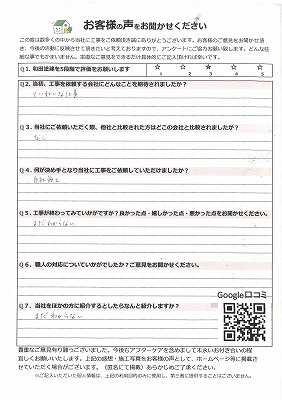 お客様の声をお聞かせください
この度は数多くの中から当社に工事をご依頼頂き誠にありがとうございます。お客様のご意見をお聞かせ頂き、
今後の活動に反映させて頂きたいと考えておりますので、アンケートにご協力お願い致します。どんな些細な事でもかまいません。
Q1．和田塗建を5段階で評価をお願いします
☆ ☆ ☆ ☆ ☆
1 2 3 4 5
Q2．当初、工事を依頼する会社にどんなことを期待されましたか？
ていねいな仕事
Q3．当社にご依頼いただく際、他社と比較された方はどこの会社と比較されましたか？
なし
Q4．何が決め手となり当社に工事をご依頼していただけましたか？
自社施工
Q5．工事が終わってみていかがですか？良かった点・嬉しかった点・悪かった点をお聞かせください。
まだわからない
Q6．職人の対応についていかがでしたか？ご意見をお聞かせください。
Q7．当社をほかの方に紹介するとしたらなんと紹介しますか？
まだわからない
Google口コミ
貴重なご意見有り難うございました。今後もアフターケアを含めまして末永いお付き合いの程
宜しくお願いいたします。上記の感想・施工写真をお客様の声として、ホームページ等に掲載さ
せていただく場合がございます。（匿名にて掲載）あらかじめご了承ください。
※ご記入いただいた個人情報は、上記の利用目的のみに使用し、第三者に提供することはございません。